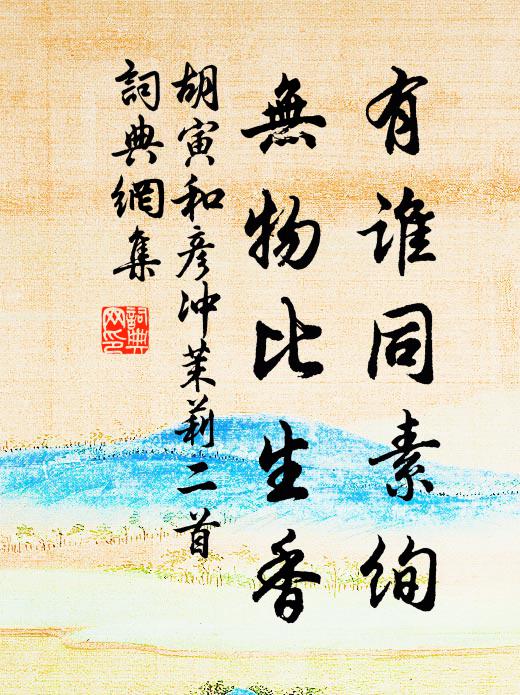 有谁同素絢
無物比生香
胡寅和彦冲茉莉二首
詞典網集
詞典
网印